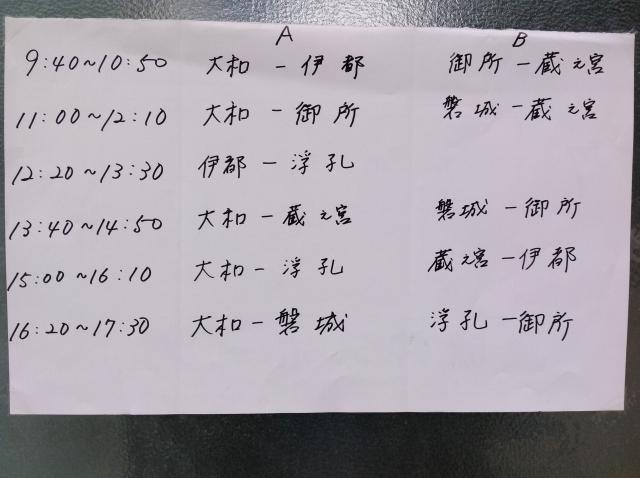 A B
9:40~10:50 大和 - 伊都 御所 - 蔵元宮
11:00~12:10 大和 - 御所 磐城 - 蔵元宮
12:20~13:30 伊都 - 浮孔
13:40~14:50 大和 - 蔵元宮 磐城 - 御所
15:00~16:10 大和 - 浮孔 蔵元宮 - 伊都
16:20~17:30 大和 - 磐城 浮孔 - 御所